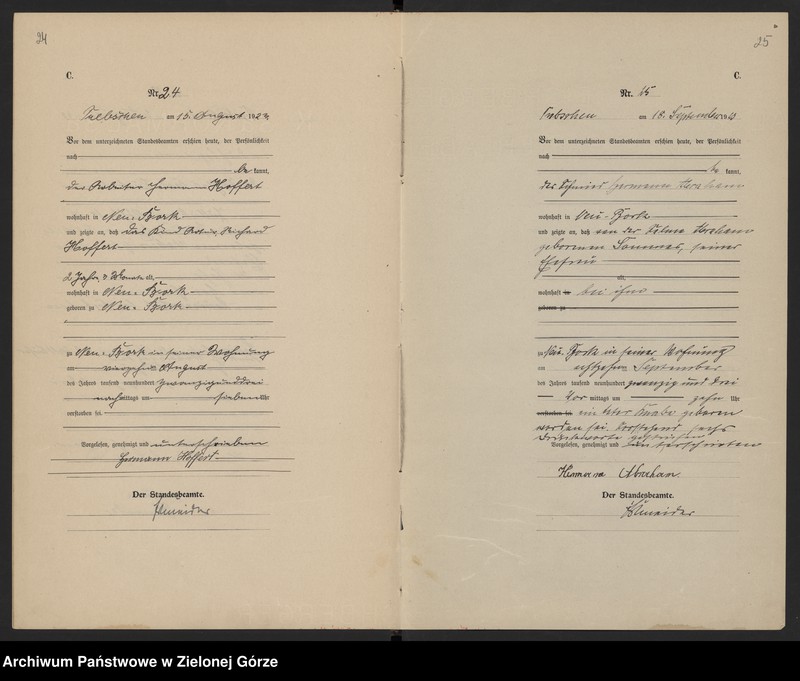 24
C.
Nr. 24
am 15. August 192
Vor dem unterzeichneten Standesbeamten erschien heute, der Persönlichkeit
nach
be kannt,
der Arbeiter Hermann Hoffert
wohnhaft in Neu-Bork
und zeigte an, daß das Kind Richard
Hoffert
2 Jahre Monate alt,
wohnhaft in Neu-Bork
geboren zu Neu-Bork
zu Neu-Bork in seiner Wohnung
am vierzehn August
des Jahres tausend neunhundert zwanzigunddrei
nachmittags um sieben Uhr
verstorben sei.
Vorgelesen, genehmigt und unterschrieben
Hermann Hoffert
Der Standesbeamte.
Schneider
25
C.
Nr. 25
am 18. September
Vor dem unterzeichneten Standesbeamten erschien heute, der Persönlichkeit
nach
be kannt,
der Hermann Abraham
wohnhaft in Neu-Bork
und zeigte an, daß von der Abraham
geborenen seiner
Ehefrau
alt,
wohnhaft in bei ihm
geboren zu
zu Neu-Bork in seiner Wohnung
am achtzehn September
des Jahres tausend neunhundert zwanzig und drei
vor mittags um zehn Uhr
verstorben sei. ein toter Knabe geboren
worden sei. Vorstehend sechs
Druckworte gestrichen
Vorgelesen, genehmigt und unterschrieben
Hermann Abraham.
Der Standesbeamte.
Schneider
Archiwum Państwowe w Zielonej Górze